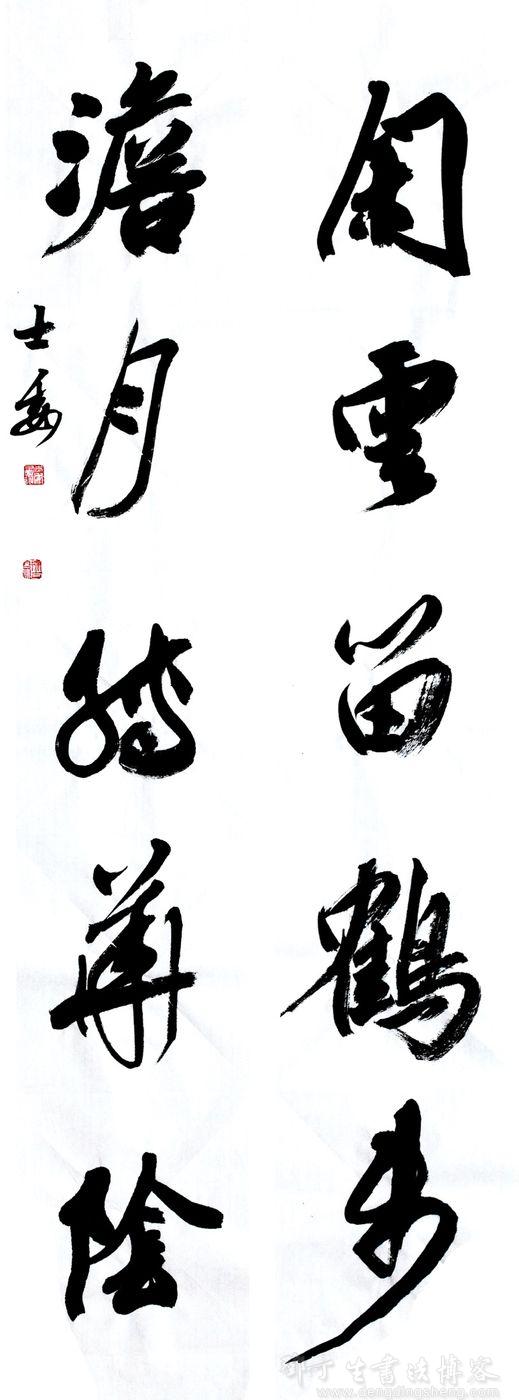 閑雲留鶴步
澹月轉華陰
邓丁生書法博客
www.dengdingsheng.com